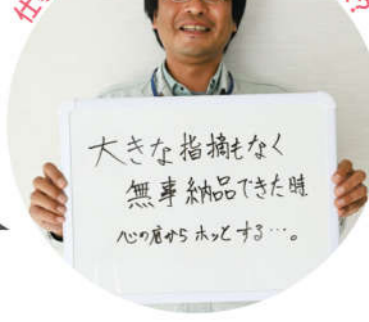 大きな指摘もなく
無事納品できた時
心の底からホッとする…。